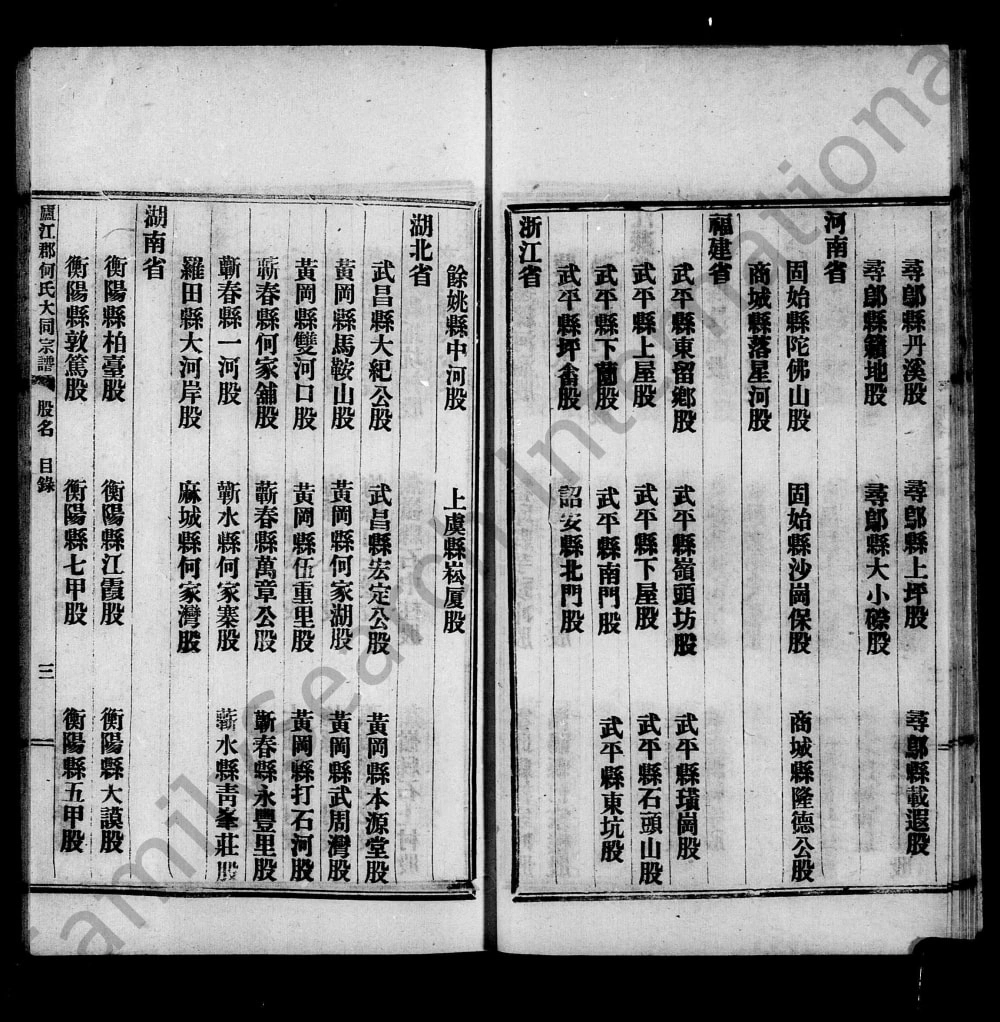 尋鄔縣丹溪股 尋鄔縣上坪股 尋鄔縣載遐股
尋鄔縣籟地股 尋鄔縣大小礤股
河南省
固始縣陀佛山股 固始縣沙崗保股 商城縣隆德公股
商城縣落星河股
福建省
武平縣東留鄉股 武平縣嶺頭坊股 武平縣璜崗股
武平縣上屋股 武平縣下屋股 武平縣石頭山股
武平縣下蘭股 武平縣南門股 武平縣東坑股
武平縣坪畬股 詔安縣北門股
浙江省
餘姚縣中河股 上虞縣崧厦股
湖北省
武昌縣大紀公股 武昌縣宏定公股 黃岡縣本源堂股
黃岡縣馬鞍山股 黃岡縣何家湖股 黃岡縣武周灣股
黃岡縣雙河口股 黃岡縣伍重里股 黃岡縣打石河股
蘄春縣何家舖股 蘄春縣萬章公股 蘄春縣永豐里股
蘄春縣一河股 蘄水縣何家寨股 蘄水縣青峯莊股
羅田縣大河岸股 麻城縣何家灣股
湖南省
衡陽縣柏臺股 衡陽縣江霞股 衡陽縣大謨股
衡陽縣敦篤股 衡陽縣七甲股 衡陽縣五甲股
廬江郡何氏大同宗譜 股名 目錄 三
FamilySearch International